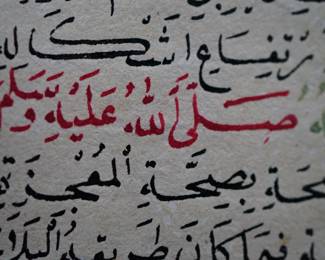 ارْتِفَاعِ اشْكَالِ
صَلَّى اللّٰهُ عَلَيْهِ وَسَلَّمَ
بِصِحَّةِ الْمُعْجِزَةِ
فِيمَا كَانَ طَرِيقُهُ الْبَلَاغَ